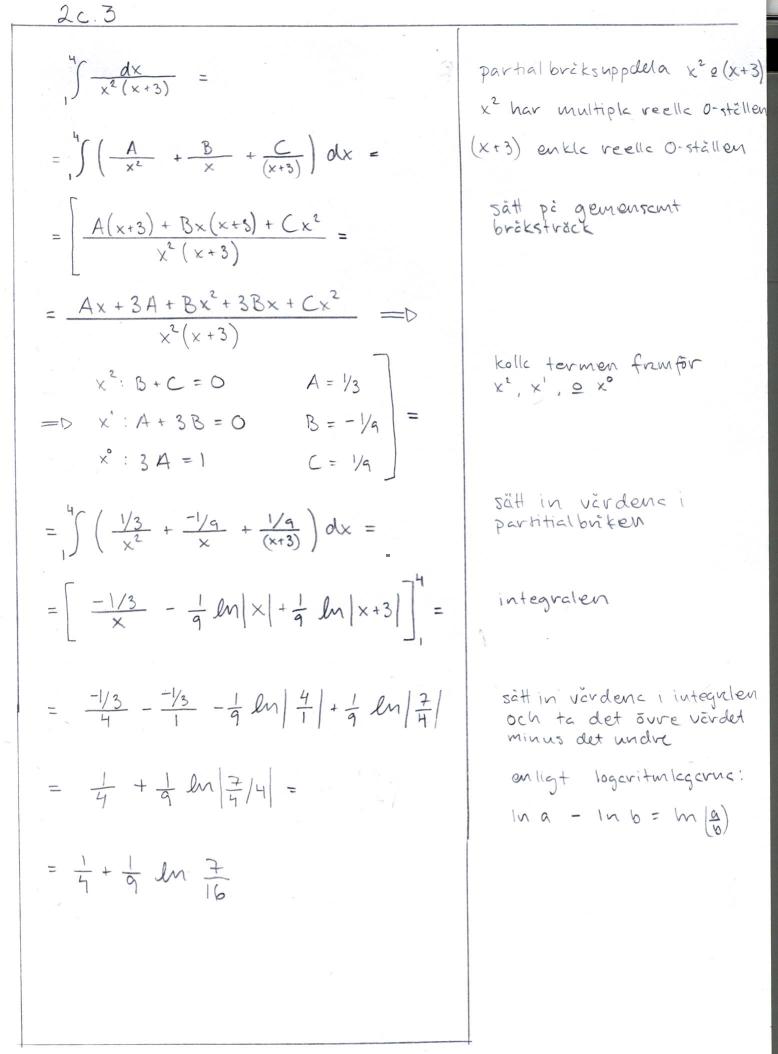 2c.3
₁⁴∫ dx / x²(x+3) =
partialbråksuppdela x² o (x+3)
x² har multipla reella 0-ställen
= ₁⁴∫ ( A/x² + B/x + C/(x+3) ) dx =
(x+3) enkla reella 0-ställen
= [ A(x+3) + Bx(x+3) + Cx² / x²(x+3) =
sätt på gemensamt
bråksträck
= Ax + 3A + Bx² + 3Bx + Cx² / x²(x+3) ⟹
x²: B + C = 0 A = 1/3
⟹ x¹: A + 3B = 0 B = -1/9 ] =
x⁰: 3A = 1 C = 1/9
kolla termen framför
x², x¹, o x⁰
= ₁⁴∫ ( 1/3 / x² + -1/9 / x + 1/9 / (x+3) ) dx =
sätt in värdena i
partitialbråken
= [ -1/3 / x - 1/9 ln|x| + 1/9 ln|x+3| ]₁⁴ =
integralen
= -1/3 / 4 - -1/3 / 1 - 1/9 ln|4/1| + 1/9 ln|7/4|
sätt in värdena i integralen
och ta det övre värdet
minus det undre
= 1/4 + 1/9 ln|7/4 /4| =
enligt logaritmlagarna:
ln a - ln b = ln(a/b)
= 1/4 + 1/9 ln 7/16